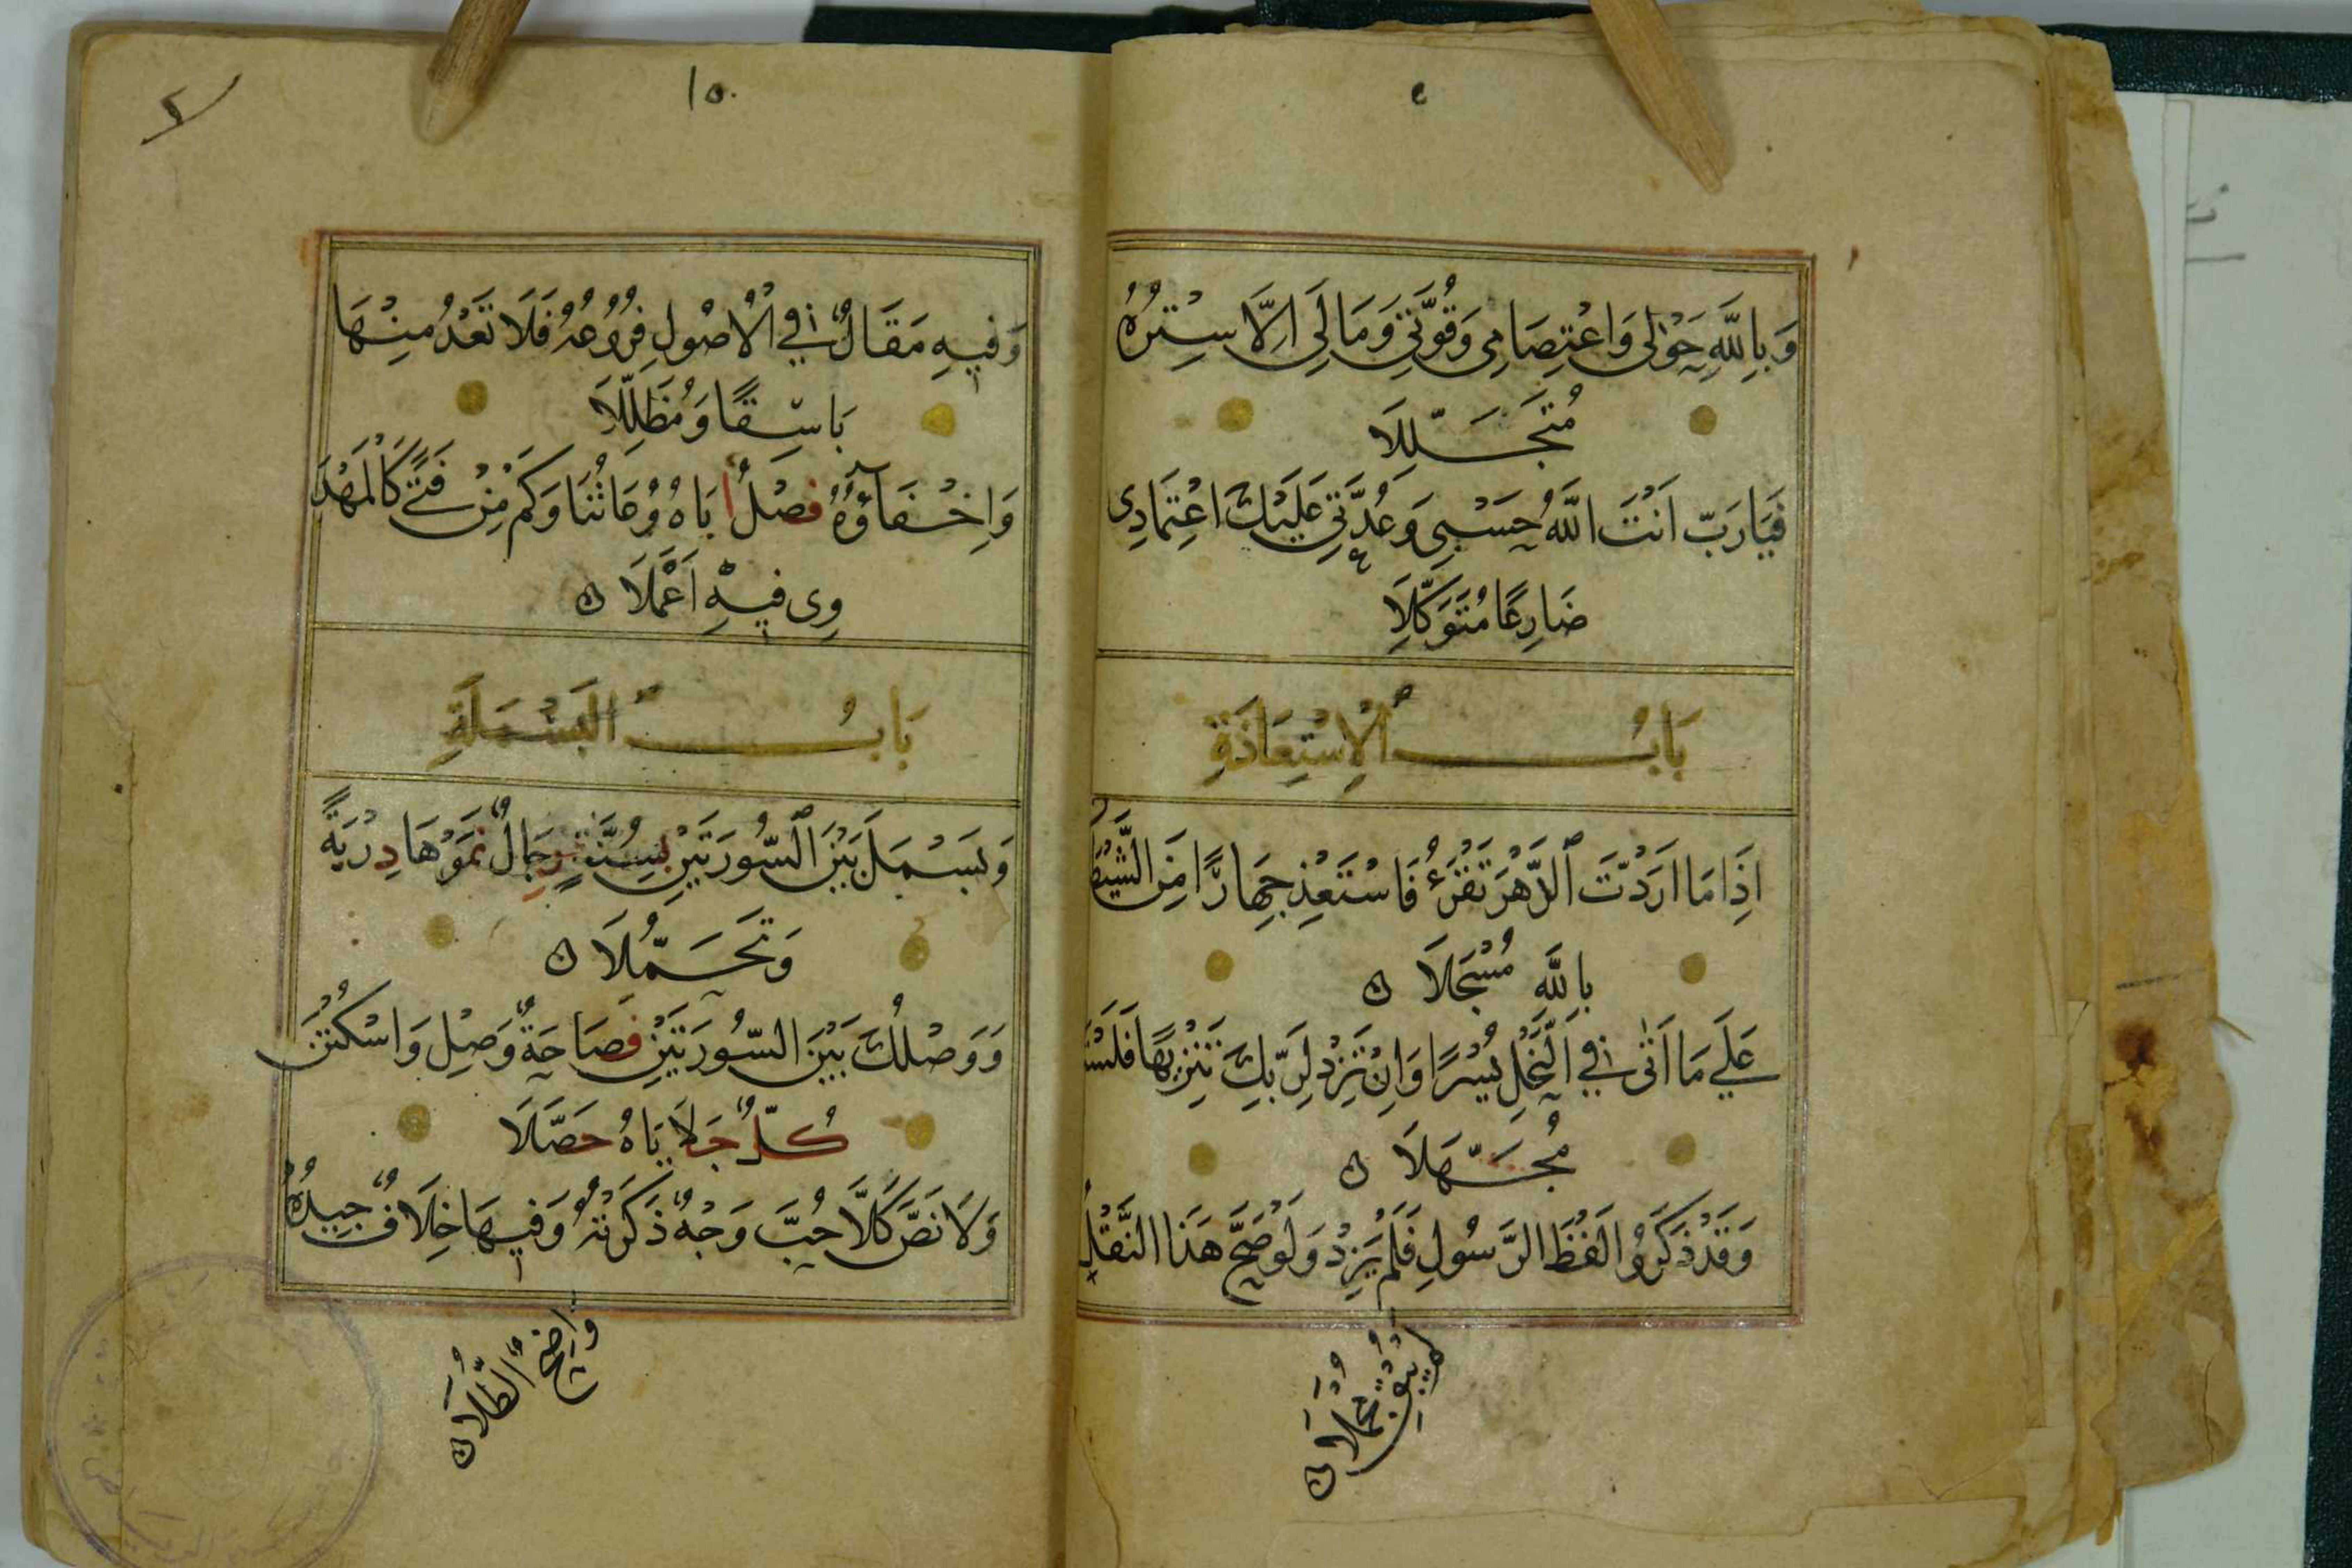 وَبِاللَّهِ حَوْلِى وَاعْتِصَامِى وَقُوَّتِى وَمَا لِىَ اِلَّا سِتْرُهُ
مُتَجَلِّلَا
فَيَارَبِّ اَنْتَ اللَّهُ حَسْبِى وَعُدَّتِى عَلَيْكَ اعْتِمَادِى
ضَارِعًا مُتَوَكِّلَا
بَابُ الْاِسْتِعَاذَةِ
اِذَا مَا اَرَدْتَ الدَّهْرَ تَقْرَءُ فَاسْتَعِذْ جِهَارًا مِنَ الشَّيْطَ
بِاللَّهِ مُسْجَلَا ن
عَلَى مَا اَتَى فِى النَّحْلِ يُسْرًا وَاِنْ تَزِدْ لِرَبِّكَ تَنْزِيهًا فَلَسْتَ
مُجَهَّلَا ن
وَقَدْ ذَكَرُوا لَفْظَ الرَّسُولِ فَلَمْ يَزِدْ وَلَوْ صَحَّ هَذَا النَّقْلُ
لَمْ يُبْقِ مُجْمَلَا ن
١٥٠
وَفِيهِ مَقَالٌ فِى الْاُصُولِ فُرُوعُهُ فَلَا تَعْدُ مِنْهَا
بَاسِقًا وَمُظَلِّلَا
وَاِخْفَاؤُهُ فَصْلٌ اَبَاهُ وُعَاتُنَا وَكَمْ مِنْ فَتًى كَالْمَهْدَ
وِى فِيهِ اَعْمَلَا ن
بَابُ الْبَسْمَلَةِ
وَبَسْمَلَ بَيْنَ السُّورَتَيْنِ بِسُنَّةٍ رِجَالٌ نَمَوْهَا دِرْيَةً
وَتَحَمُّلَا ن
وَوَصْلُكَ بَيْنَ السُّورَتَيْنِ فَصَاحَةٌ وَصِلْ وَاسْكُتَنْ
كُلٌّ جَلَايَاهُ حَصَّلَا
وَلَا نَصَّ كَلَّا حُبَّ وَجْهٌ ذَكَرْتُهُ وَفِيهَا خِلَافٌ جِيدُهُ
وَاضِحُ الطُّلَا ن